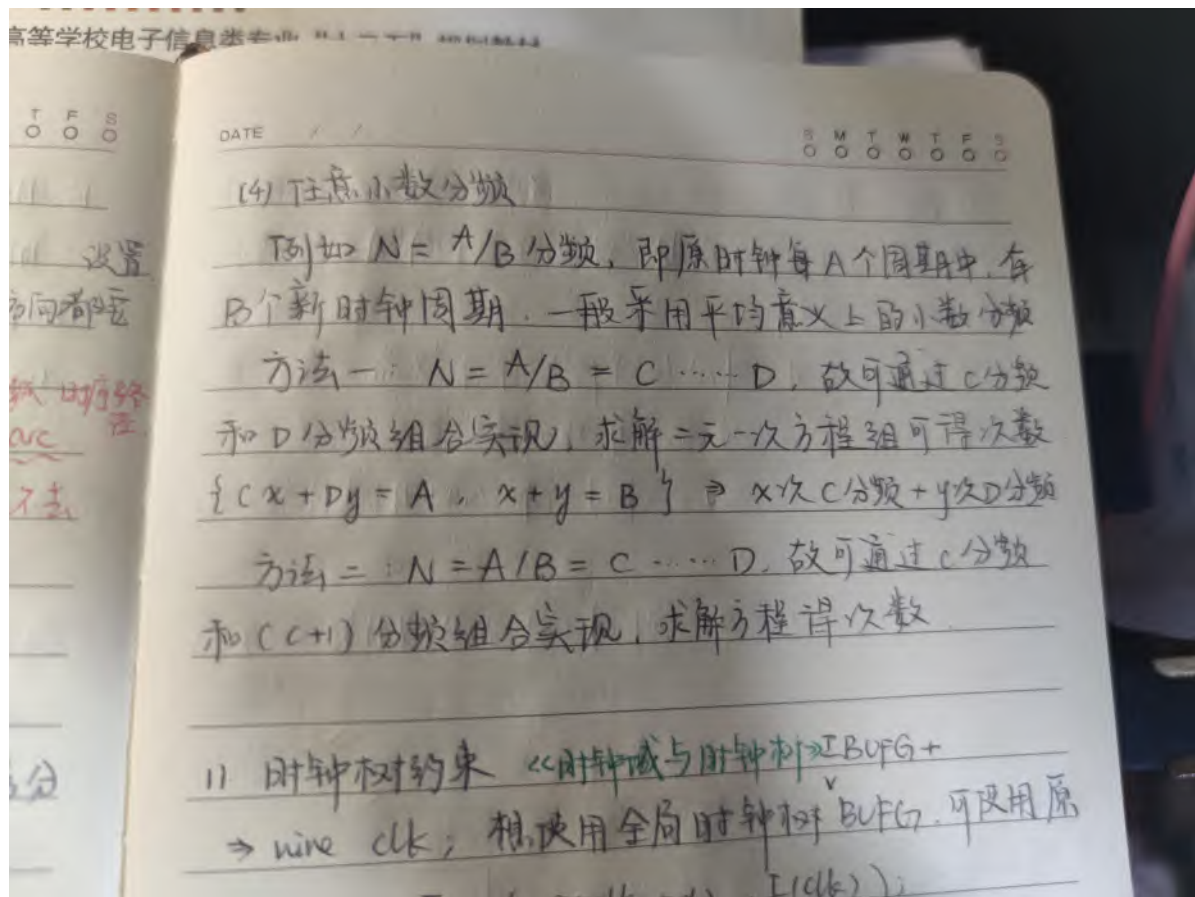 高等学校电子信息类专业"十二五"规划教材
T F S
设置
DATE / /
S M T W T F S
(4) 任意小数分频
例如 N = A/B 分频，即原时钟每A个周期中，有
B个新时钟周期．一般采用平均意义上的小数分频
方法一： N = A/B = C ····· D，故可通过C分频
和D分频组合实现，求解二元一次方程组可得次数
{Cx + Dy = A， x + y = B } ⇒ x次C分频+y次D分频
方法二：N = A/B = C ······ D，故可通过C分频
和(C+1)分频组合实现，求解方程得次数
11 时钟树约束 <<时钟域与时钟树>> IBUFG +
→ wire clk; 想使用全局时钟树BUFG，可使用原
(clk));